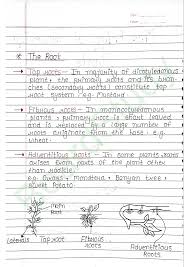 * The Root
→ Tap roots :- In majority of dicotyledonous
plant, the primary roots and its bran-
ches (Secondary roots) constitute tap
root system. e.g. Mustard.
→ Fibrous roots :- In monocotyledonous
plants, primary root is short lived
and is replaced by a large number of
roots originate from the base. e.g.
Wheat.
→ Adventitious Roots :- In some plants, roots
arises from parts of the plant other
than radicle.
e.g. Grass, Monstera, Banyan tree,
Sweet Potato.
Main
Root
Laterals
Tap root
Fibrous
Roots
Adventitious
Roots